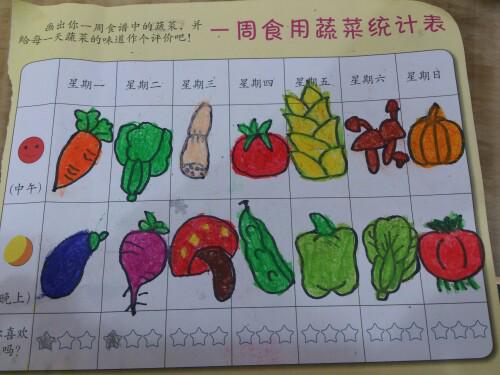 画出你一周食谱中的蔬菜，并
给每一天蔬菜的味道作个评价吧！
一周食用蔬菜统计表
星期一 星期二 星期三 星期四 星期五 星期六 星期日
(中午)
晚上)
喜欢
吗?